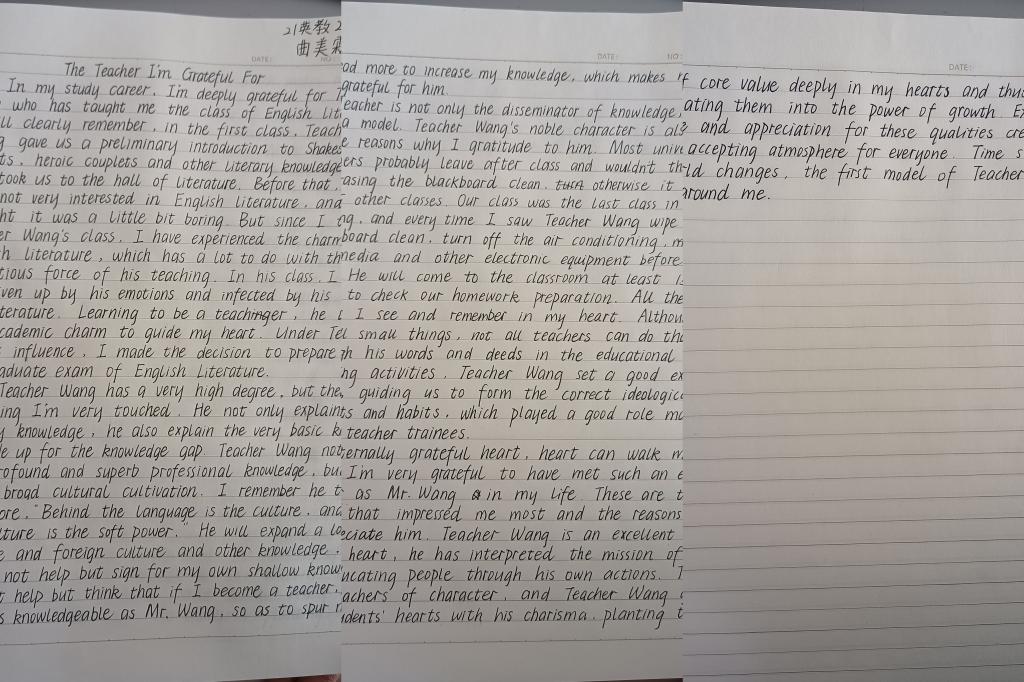 21英教2
曲美
DATE:
NO:
The Teacher I'm Grateful For
In my study career, I'm deeply grateful for
who has taught me the class of English Lit
clearly remember, in the first class, Teach
gave us a preliminary introduction to Shakes
ts, heroic couplets and other literary knowledge
took us to the hall of literature. Before that,
not very interested in English literature, and
ht it was a little bit boring. But since I
er Wang's class, I have experienced the charm
h literature, which has a lot to do with th
tious force of his teaching. In his class, I
ven up by his emotions and infected by his
terature. Learning to be a teachinger, he
cademic charm to guide my heart. Under Te
influence, I made the decision to prepare
aduate exam of English Literature.
Teacher Wang has a very high degree, but the
ing I'm very touched. He not only explain
y knowledge, he also explain the very basic k
e up for the knowledge gap. Teacher Wang not
rofound and superb professional knowledge, bu
broad cultural cultivation. I remember he t
ore, "Behind the language is the culture, and
lture is the soft power." He will expand a lo
e and foreign culture and other knowledge.
not help but sign for my own shallow know
t help but think that if I become a teacher,
s knowledgeable as Mr. Wang, so as to spur
DATE:
NO:
ad more to increase my knowledge, which makes
grateful for him.
eacher is not only the disseminator of knowledge,
a model. Teacher Wang's noble character is als
e reasons why I gratitude to him. Most univ
ers probably leave after class and wouldn't th
asing the blackboard clean, turn otherwise it
other classes. Our class was the last class in
ng, and every time I saw Teacher Wang wipe
board clean, turn off the air conditioning, m
media and other electronic equipment before
He will come to the classroom at least 1
to check our homework preparation. All the
I see and remember in my heart. Althou
small things, not all teachers can do th
gh his words and deeds in the educational
ng activities, Teacher Wang set a good ex
guiding us to form the correct ideologic
ts and habits, which played a good role mo
teacher trainees.
ternally grateful heart, heart can walk
I'm very grateful to have met such an e
as Mr. Wang in my life. These are t
that impressed me most and the reasons
eciate him. Teacher Wang is an excellent
heart, he has interpreted the mission of
ucating people through his own actions. T
achers of character, and Teacher Wang
udents' hearts with his charisma, planting t
DATE:
f core value deeply in my hearts and thus
ating them into the power of growth. Ex
and appreciation for these qualities cre
accepting atmosphere for everyone. Time s
ld changes, the first model of Teacher
around me.